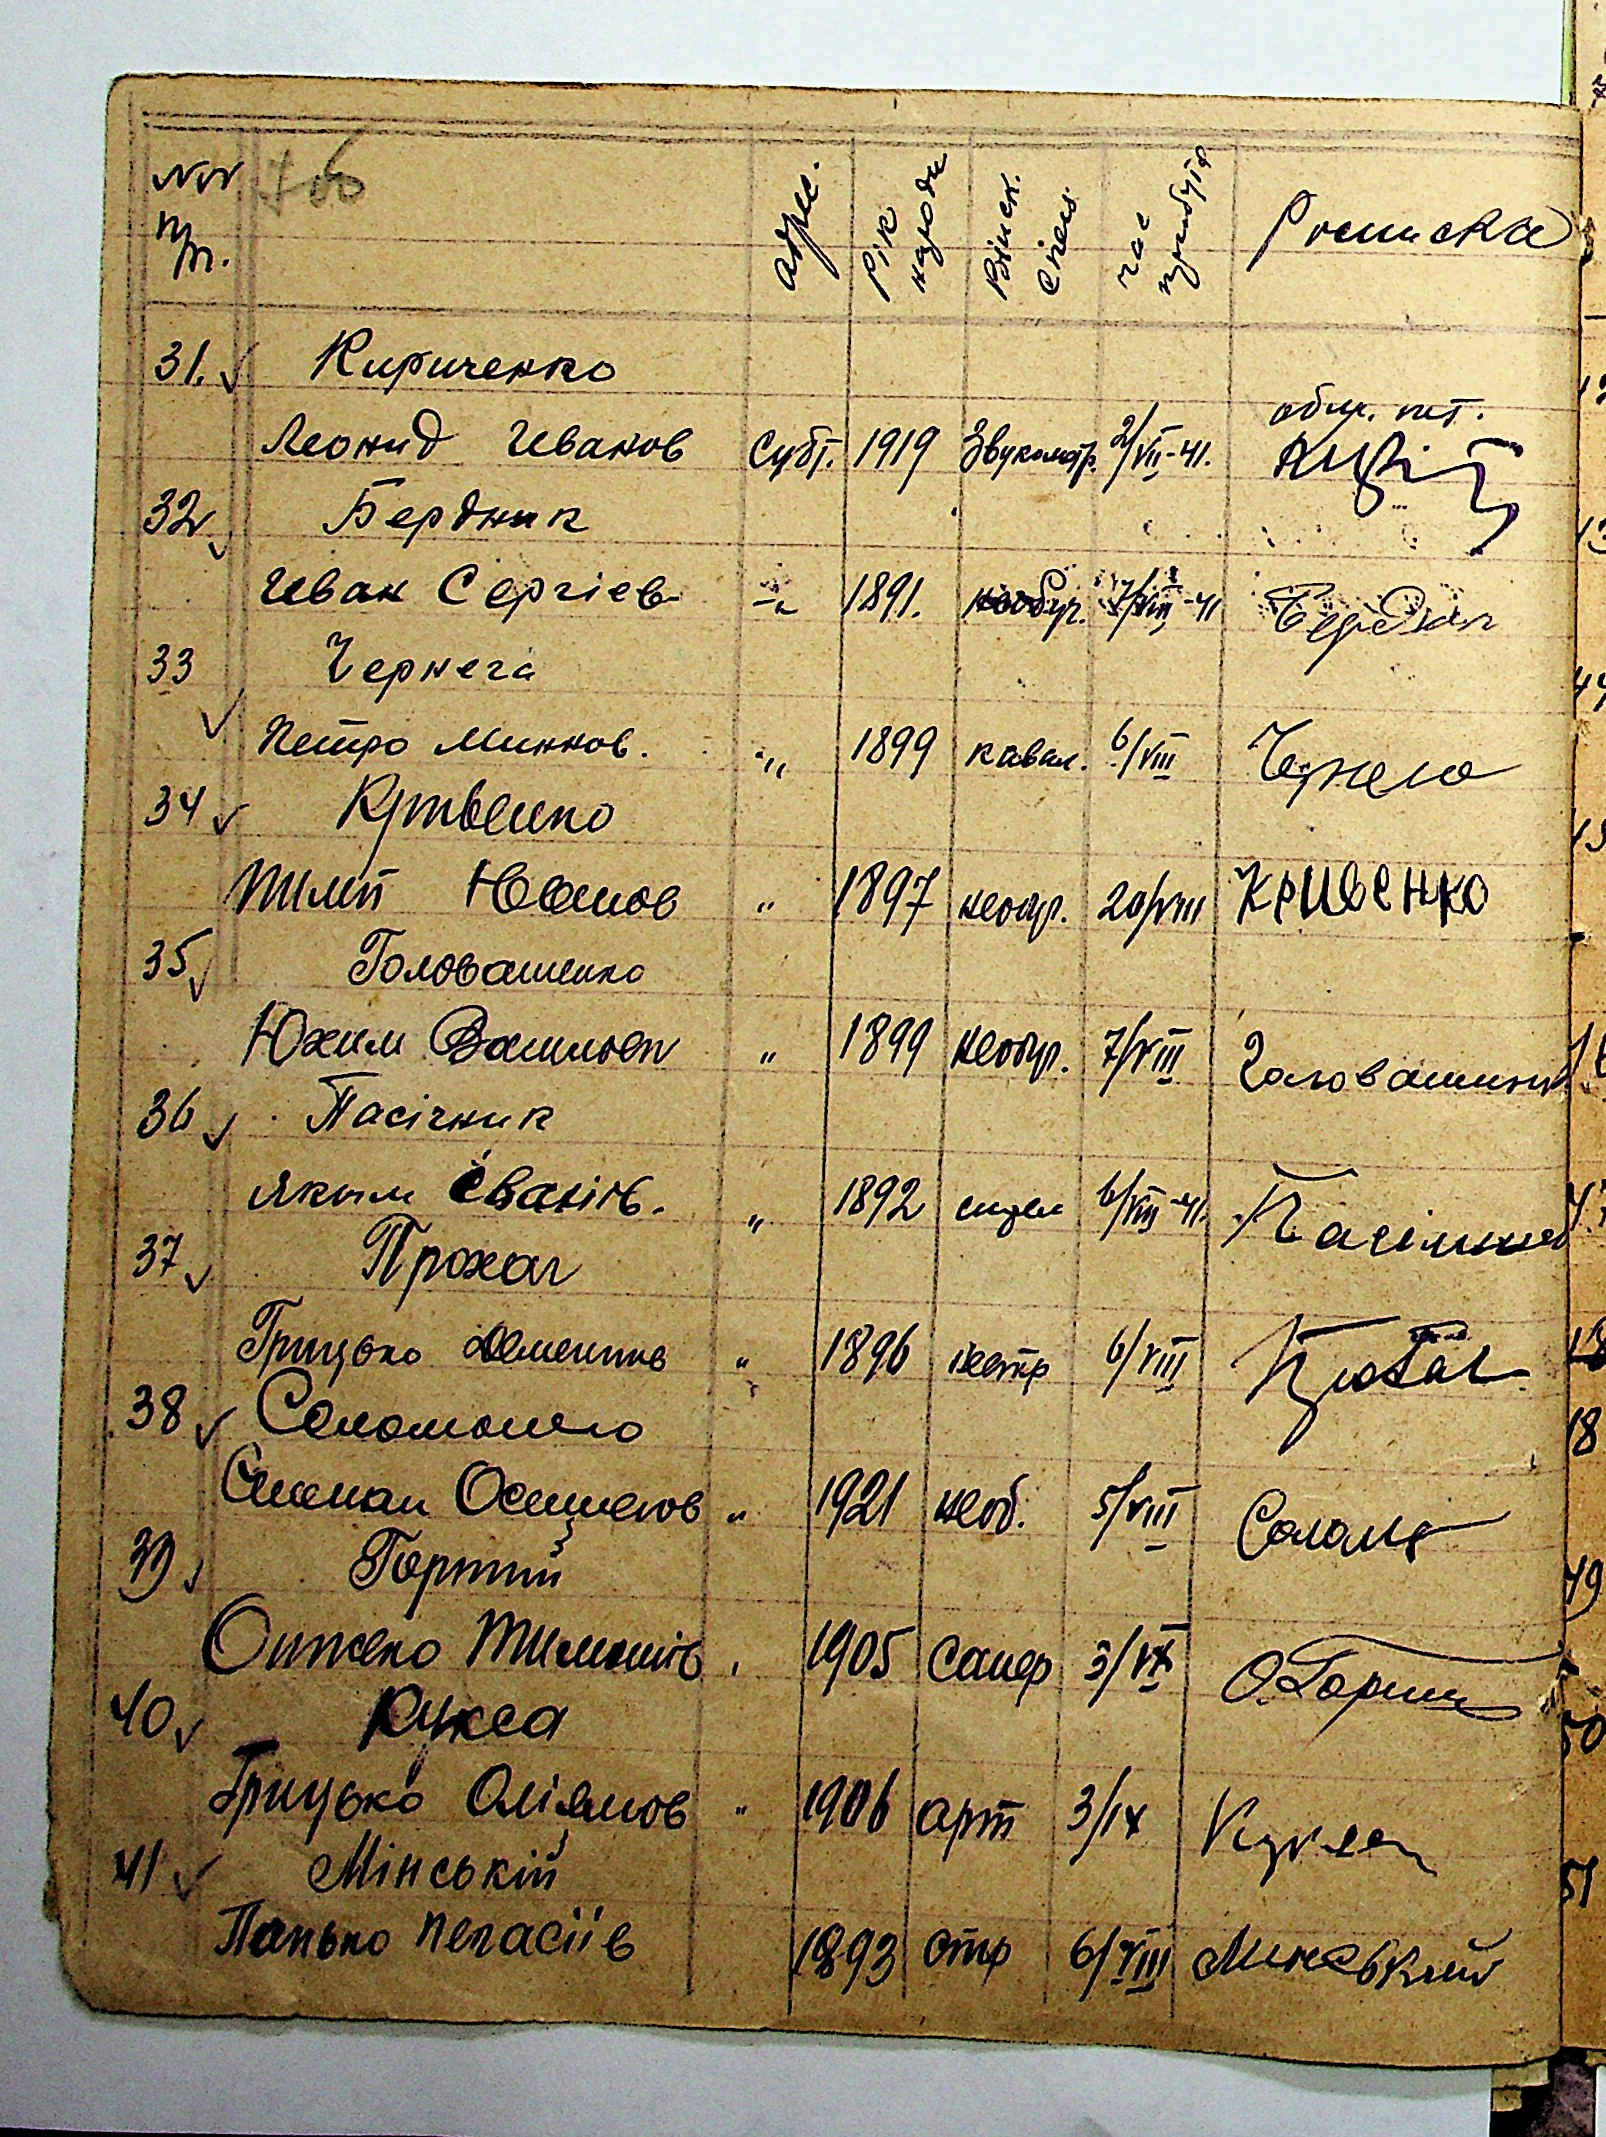 NN п/п. адрес. Рік народж Війск. спец. час прибуття Росписка
31. Кириченко
обл. пст.
Леонид Иванов Субт. 1919 Звукометр. 2/VII-41.
32 Бердник
Иван Сергіев 1891. необуч. 7/VIII-41 Бердник
33 Чернега
Петро Минков. " 1899 кавал. 6/VIII Чернега
34 Кривенко
Пилип Юванов " 1897 необуч. 20/VIII Кривенко
35 Головашенко
Юхим " 1899 необуч. 7/VIII Головашенко
36 Пасічник
Яким Іванів. " 1892 6/VIII-41. Пасічник
37 Прохач
Грицько Дементив " 1896 6/VIII Прохач
38 Соломонего
" 1921 необ. 5/VIII Солом
39 Гортий
Тимошів 1905 Сапер 3/IX О. Гортий
40 Кукса
Грицько " 1906 арт 3/IX Кукса
41 Мінській
Панько 1893 6/VIII Минський